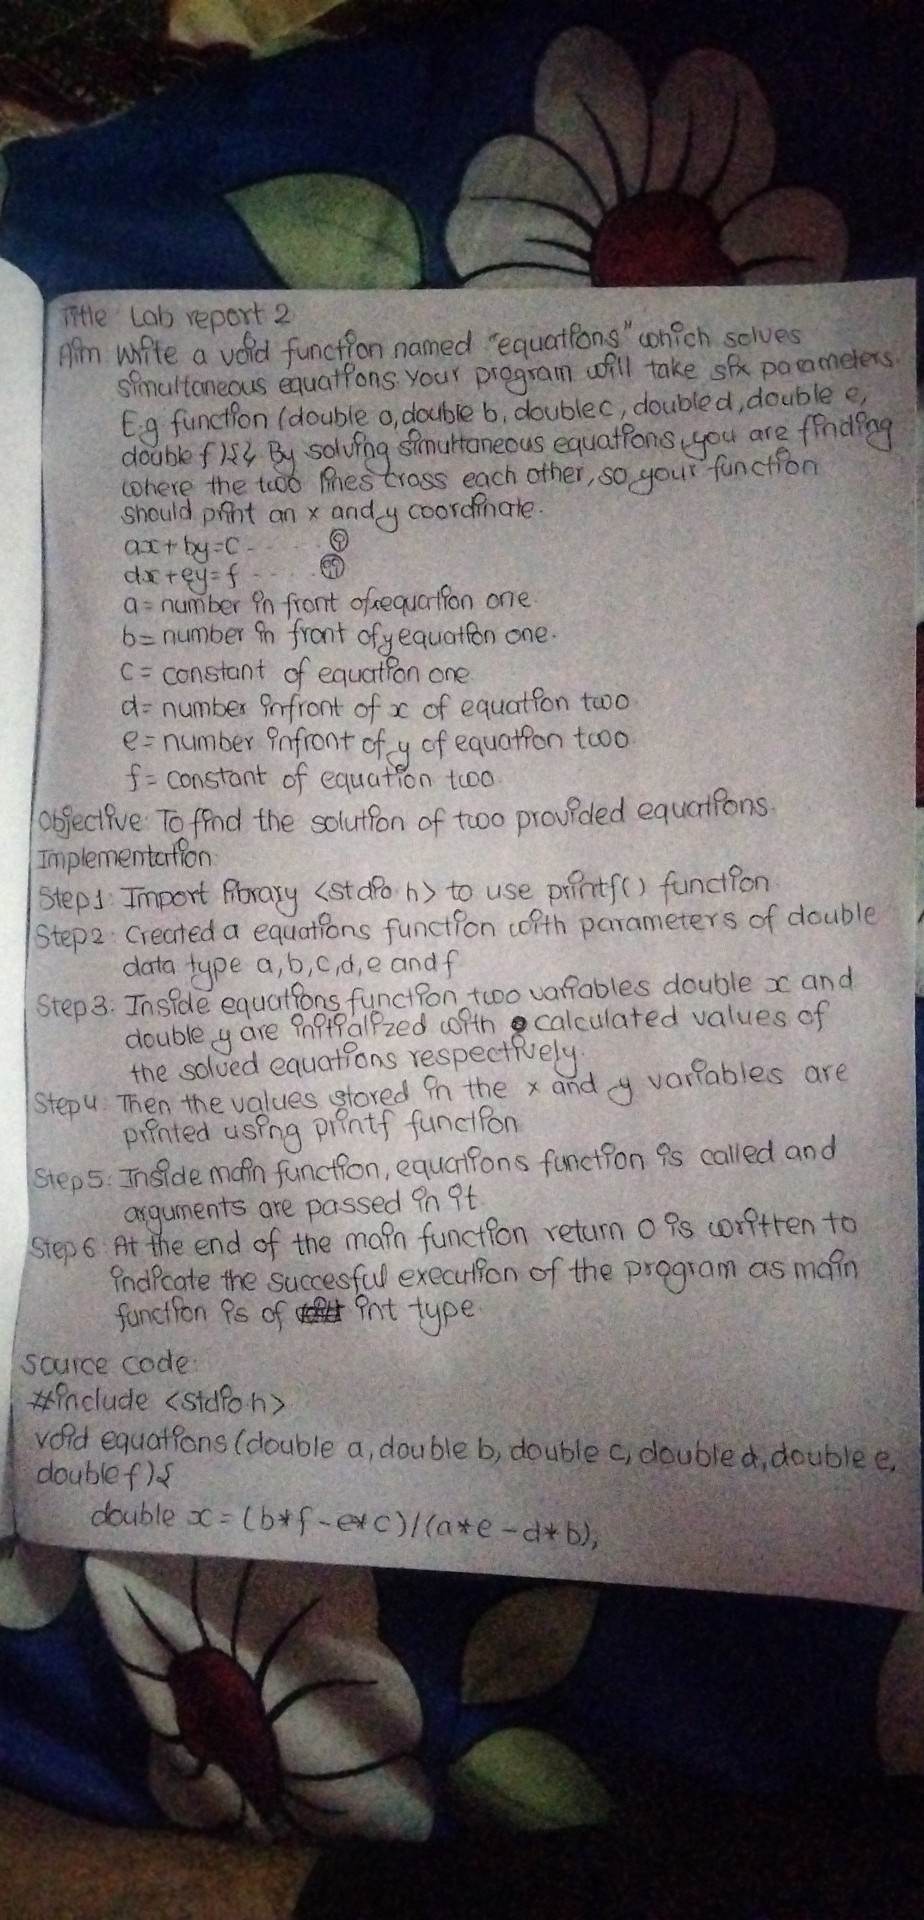 Title: Lab report 2
Aim: Write a void function named "equations" which solves
simultaneous equations. Your program will take six parameters.
E.g function (double a, double b, double c, double d, double e,
double f){} By solving simultaneous equations, you are finding
where the two lines cross each other, so your function
should print an x and y coordinate.
ax+by=c ...... (i)
dx+ey=f ...... (ii)
a= number in front of x equation one.
b= number in front of y equation one.
c= constant of equation one.
d= number infront of x of equation two.
e= number infront of y of equation two.
f= constant of equation two.
Objective: To find the solution of two provided equations.
Implementation:
Step1: Import library <stdio.h> to use printf() function.
Step2: Created a equations function with parameters of double
data type a,b,c,d,e and f
Step3: Inside equations function two variables double x and
double y are initialized with calculated values of
the solved equations respectively.
Step4: Then the values stored in the x and y variables are
printed using printf function
Step5: Inside main function, equations function is called and
arguments are passed in it.
Step6: At the end of the main function return 0 is written to
indicate the succesful execution of the program as main
function is of int type.
Source code:
#include <stdio.h>
void equations (double a, double b, double c, double d, double e,
double f){
double x = (b*f-e*c)/(a*e-d*b);